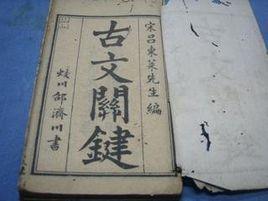 宋呂東萊先生編
古文關鍵
邹濟川書